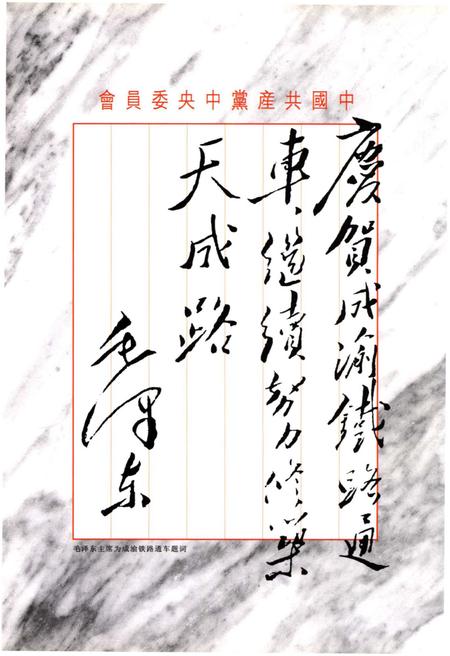 會員委央中黨產共國中
慶賀成渝鐵路通
車、繼續努力修築
天成路
毛澤东
毛泽东主席为成渝铁路通车题词